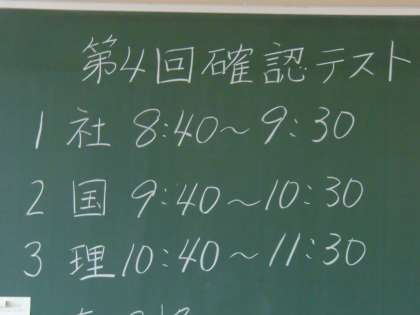 第4回確認テスト
1 社 8:40～9:30
2 国 9:40～10:30
3 理 10:40～11:30